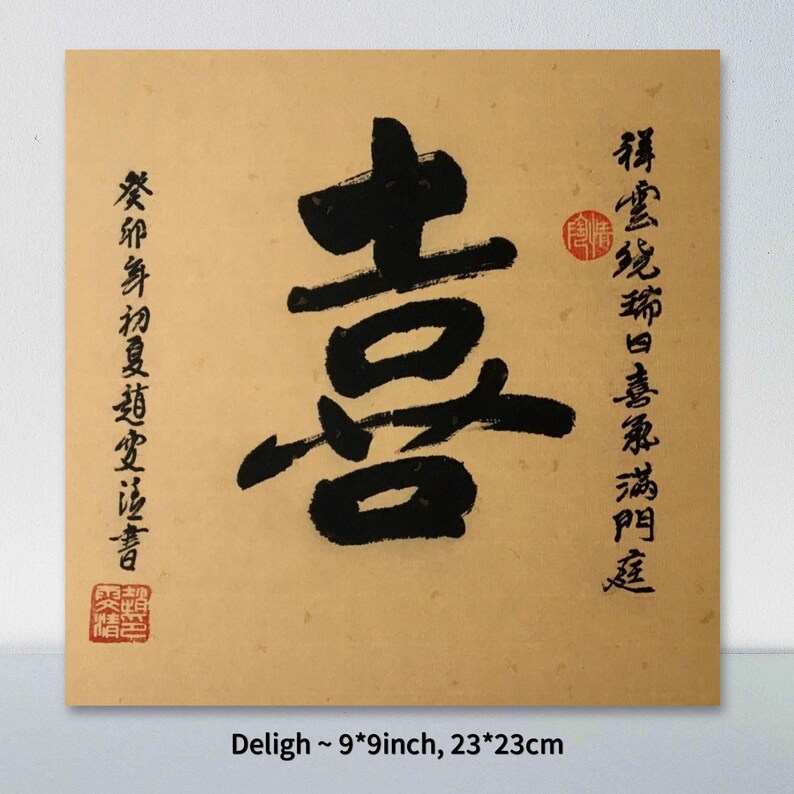 祥雲繞瑞日喜氣滿門庭
陶情
喜
癸卯年初夏趙雯清書
趙印雯清
Deligh ~ 9*9inch, 23*23cm